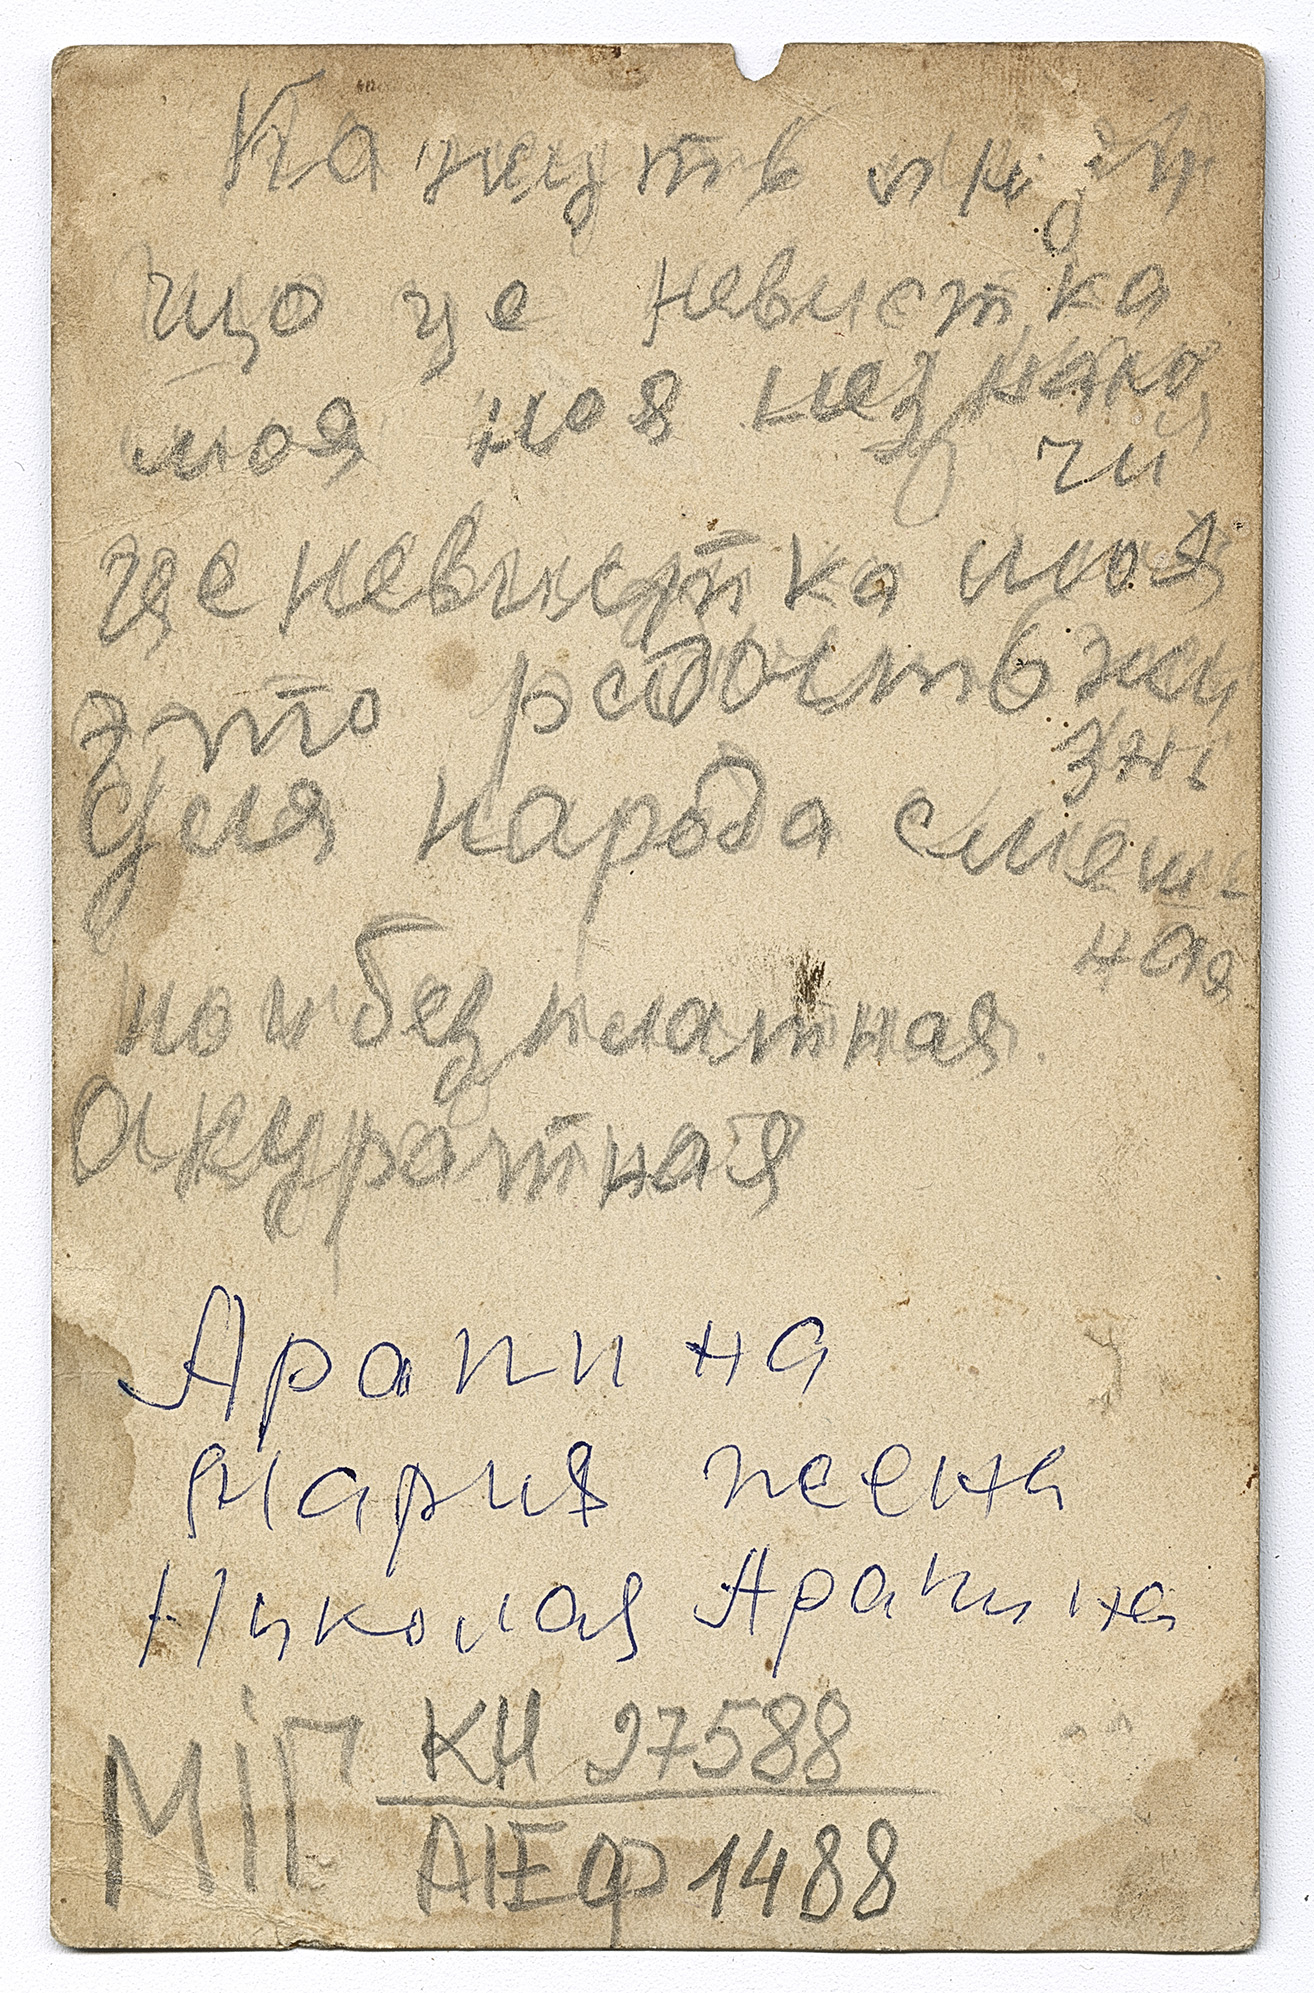 Кажуть люди
що це невистка
моя но я незнаю
чи
це невистка моя
это радость жи
зні
для народа смеш-
ная
но и безплатная
акуратная
Арапина
Мария жеена
Николая Арапина
МіГ КН 27588
АІЕФ 1488